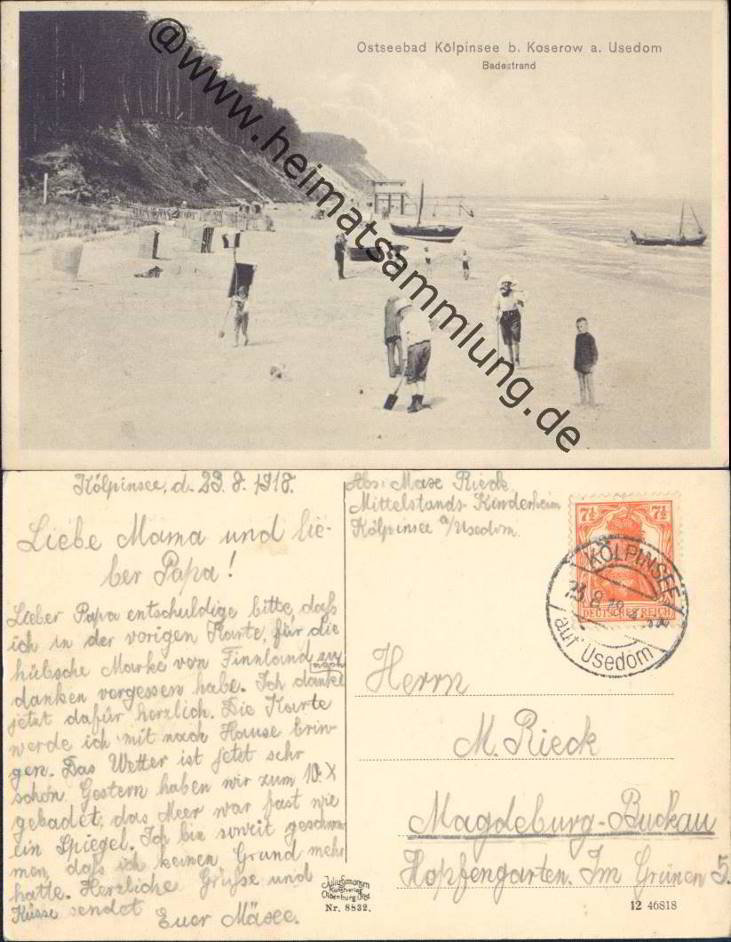 Ostseebad Kölpinsee b. Koserow a. Usedom
Badestrand
@www.heimatsammlung.de
Kölpinsee, d. 23.8.1918.
Liebe Mama und lie-
ber Papa!
Lieber Papa entschuldige bitte, daß
ich in der vorigen Karte, für die
hübsche Marke von Finnland zu
danken vergessen habe. Ich danke
jetzt dafür herzlich. Die Karte
werde ich mit nach Hause brin-
gen. Das Wetter ist jetzt sehr
schön. Gestern haben wir zum 10. X
gebadet, das Meer war fast wie
ein Spiegel. Ich bin soweit geschwom-
men, daß ich keinen Grund mehr
hatte. Herzliche Grüße und
Küsse sendet
Euer Mäxe.
Abs: Max Rieck
Mittelstands-Kinderheim
Kölpinsee a/Usedom.
7½ 7½
DEUTSCHES REICH
KÖLPINSEE
23.8.18
auf Usedom
Herrn
M. Rieck
Magdeburg-Buckau
Hopfengarten. Im Grünen 5.
Julius Simonsen
Kunstverlag
Oldenburg
Nr. 8832.
12 46818